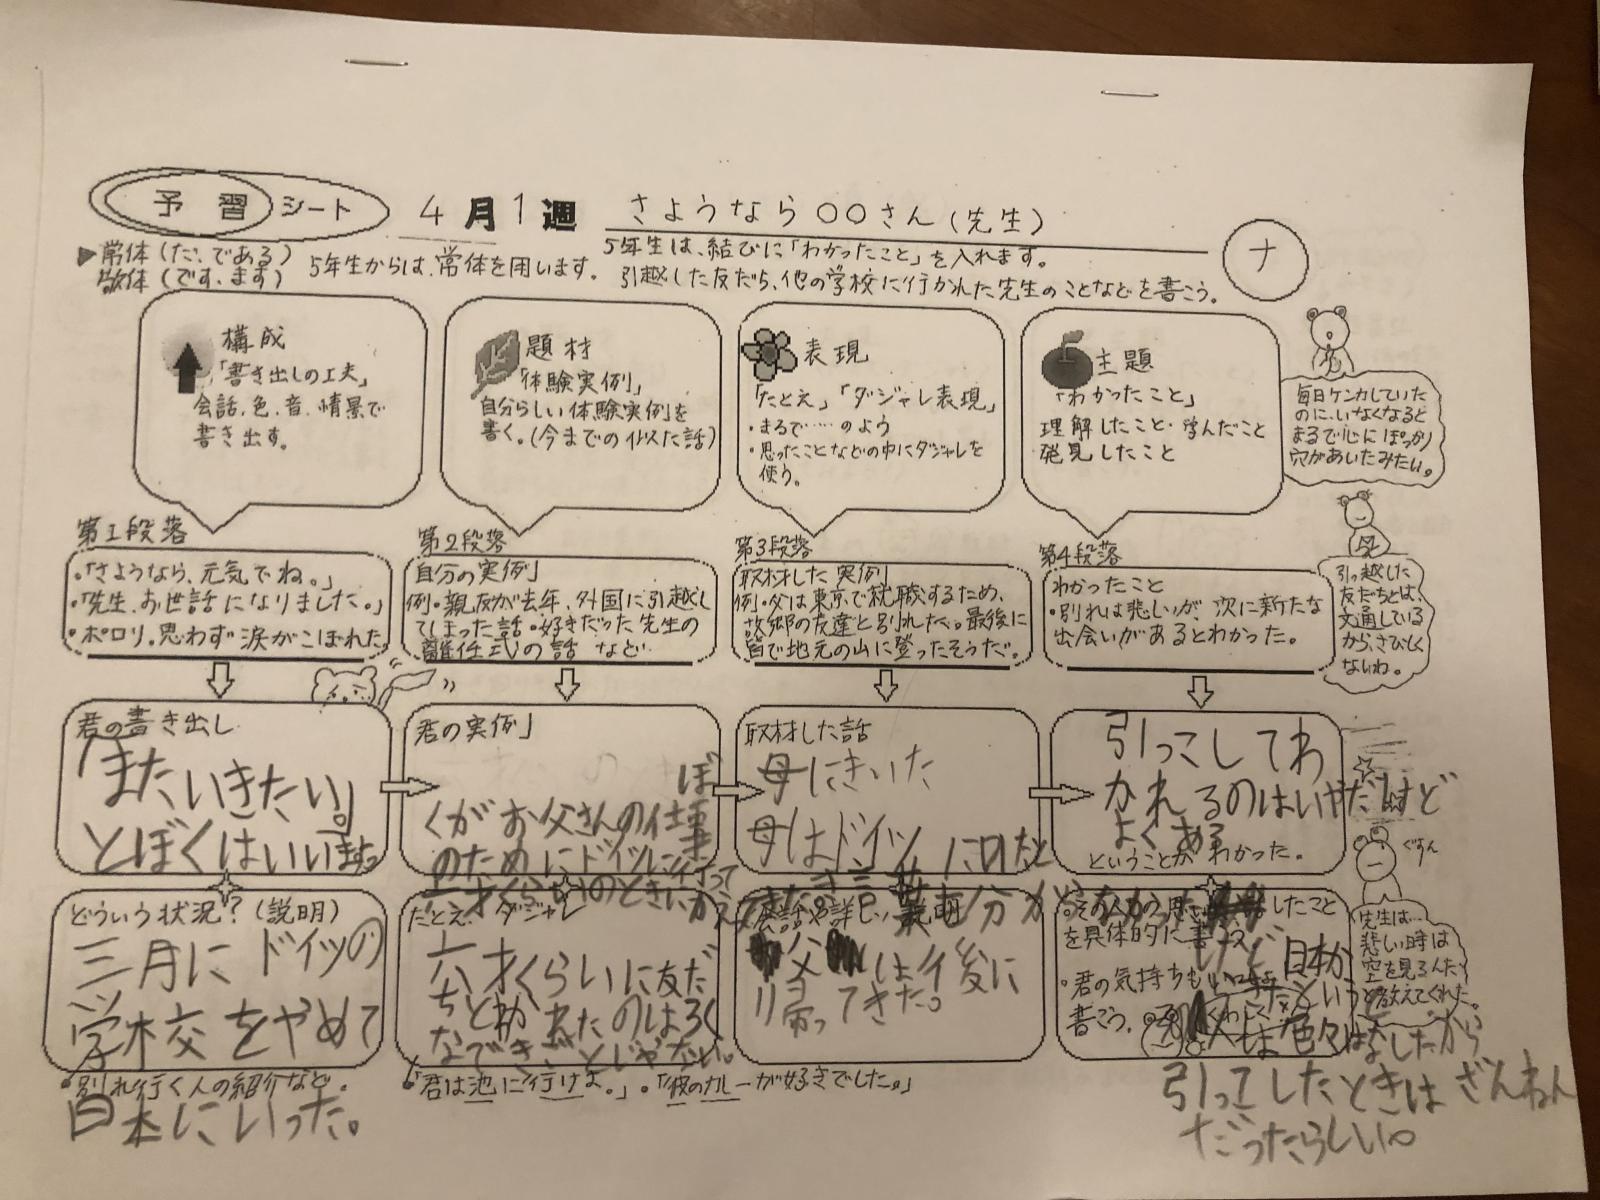 予習シート 4月1週 さようなら○○さん(先生)
ナ
▶常体(だ、である)
敬体(です、ます)
5年生からは、常体を用います。
5年生は、結びに「わかったこと」を入れます。
引越した友だち、他の学校に行かれた先生のことなどを書こう。
構成
「書き出しの工夫」
会話、色、音、情景で
書き出す。
題材
「体験実例」
自分らしい体験実例を
書く。(今までの似た話)
表現
「たとえ」「ダジャレ表現」
・まるで……のよう
・思ったことなどの中にダジャレを
使う。
主題
「わかったこと」
理解したこと・学んだこと
発見したこと
毎日ケンカしていた
のに、いなくなると
まるで心にぽっかり
穴があいたみたい。
第1段落
・「さようなら、元気でね。」
・「先生、お世話になりました。」
・ポロリ。思わず涙がこぼれた
第2段落
自分の実例」
例・親友が去年、外国に引越し
てしまった話・好きだった先生の
離任式の話 など…
第3段落
取材した実例」
例・父は東京で就職するため、
故郷の友達と別れた。最後に
皆で地元の山に登ったそうだ。
第4段落
わかったこと
・別れは悲しいが、次に新たな
出会いがあるとわかった。
引っ越した
友だちとは、
文通している
から、さびしく
ないわ。
君の書き出し
「またいきたい。」
とぼくはいいました
どういう状況?(説明)
三月にドイツの
学校をやめて
・別れ行く人の紹介など。
日本にいった。
君の実例」
ぼ
くがお父さんの仕事
のためにドイツに行って
たとえ、ダジャレ
六才くらいに友だ
ちとわかれたのはろく
なできごとじゃない。
・「君は池に行けよ。」・「彼のカレーが好きでした。」
取材した話
母にきいた
母はドイツ
父は1年後に
帰ってきた。
引っこしてわ
かれるのはいやだけど
よくある
ということがわかった。
を具体的に書こう
・君の気持ちも
書こう。
けど日本か
引っこしたときはざんねん
だったらしい。
ぐすん
先生は…
悲しい時は
空を見るんだ
と教えてくれた。